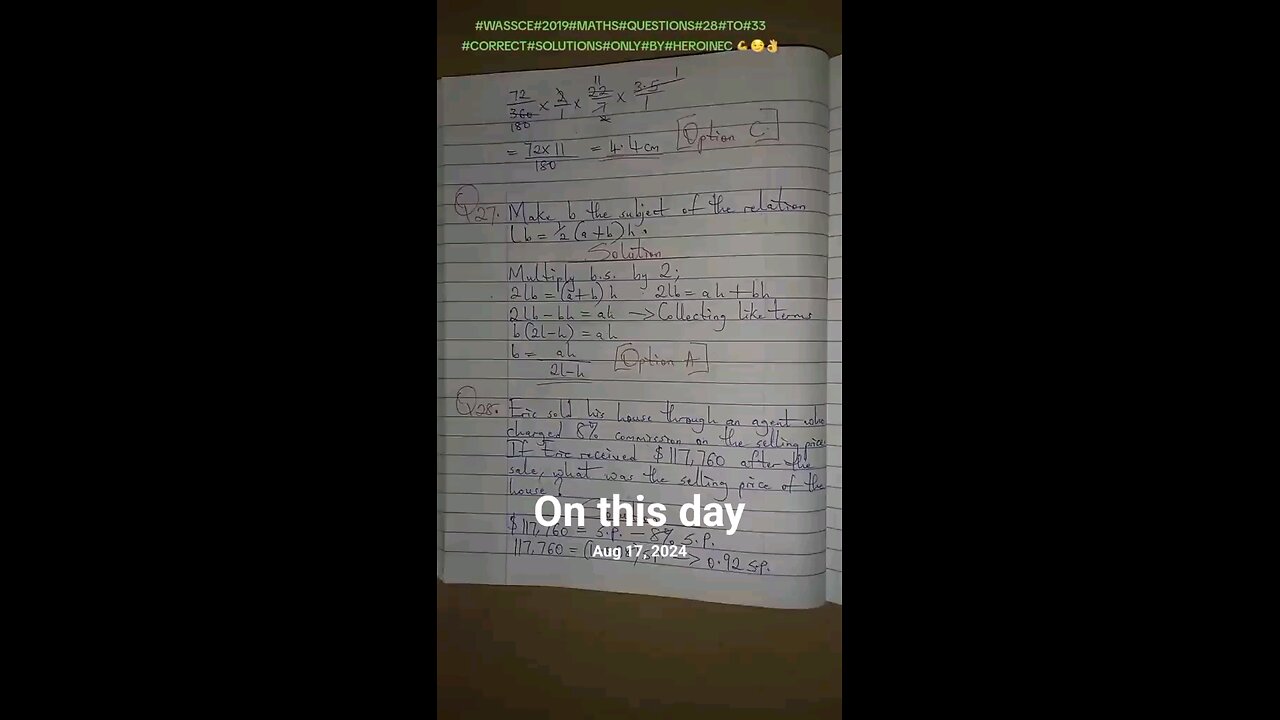 #WASSCE#2019#MATHS#QUESTIONS#28#TO#33
#CORRECT#SOLUTIONS#ONLY#BY#HEROINEC 💪😏👌
72/360 × 2/1 × 22/7 × 3.5/1
180 11 1
= 72×11/180 = 4.4cm Option C
Q27. Make b the subject of the relation
Lb = ½(a+b)h.
Solution
Multiply b.s. by 2;
2lb = (a+b)h 2lb = ah + bh
2lb - bh = ah → Collecting like terms
b(2l-h) = ah
b = ah/2l-h Option A
Q28. Eric sold his house through an agent who
charged 8% commission on the selling price
If Eric received $117,760 after the
sale, what was the selling price of the
house?
On this day
$117,760 = s.p. - 8% s.p.
Aug 17, 2024
117,760 = ( → 0.92 s.p.